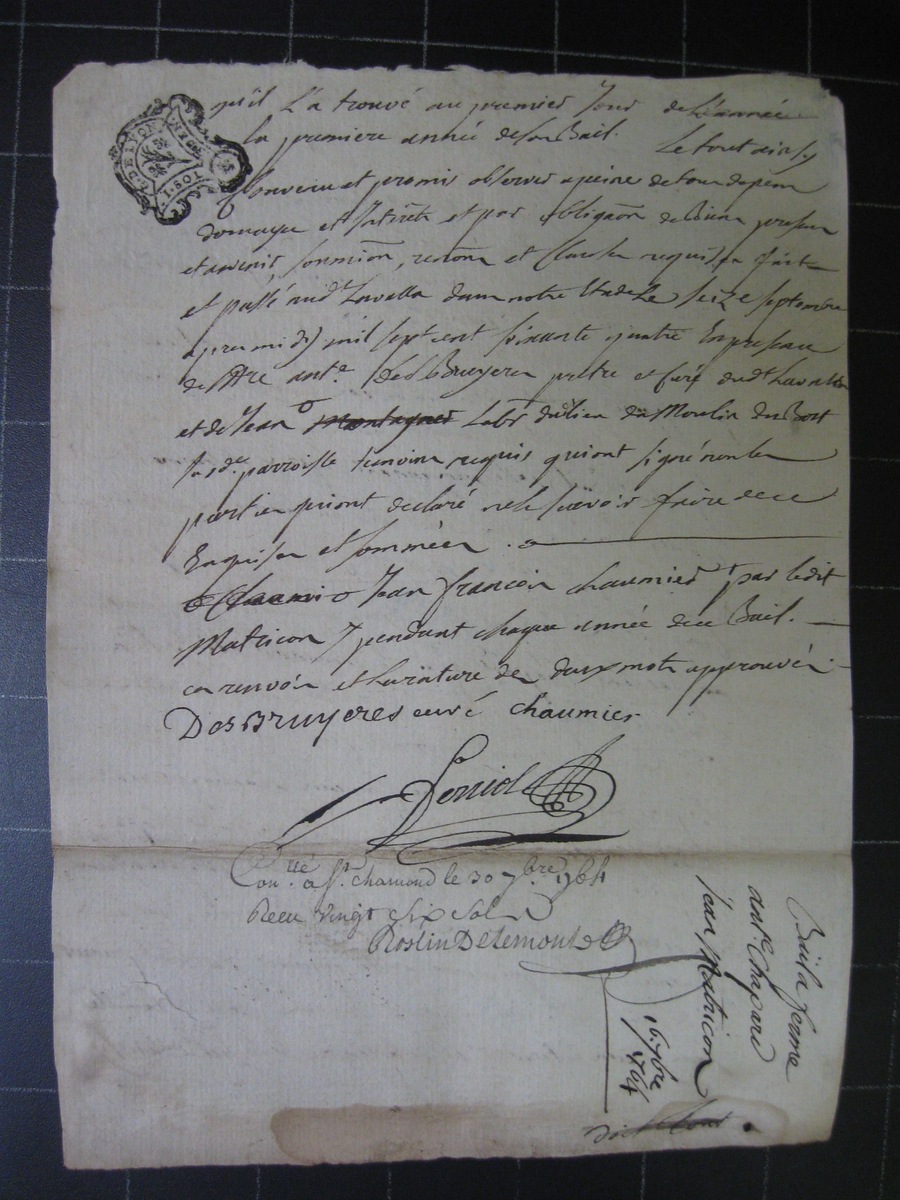 G. DE LYON
I. SOL
qu'il L'a trouvé au premier Jour de L'année
la premiere année de son Bail. Le tout ainsy
Convenu et promis observer a peine de tous depens
domage et Interets et par obligaōn de Biens presens
et avenir, soumiōn, renonōn et Clauses requises fait
et passé aud.t Lavalla dans notre Etude Le seize septembre
apres midy mil sept cent soixante quatre En presence
de Mre ant.e Des Bruyeres pretre et Curé dud.t Lavalla
et de Jean Montagner Lab.r du lieu du Moulin du Bost
susd.e parroisse temoins requis qui ont signé non les
parties qui ont declaré ne le sçavoir faire de ce
Enquises et sommées.
Jean francois chaumier par ledit
Matricon pendant chaque année de ce Bail.
ces renvois et la rature de deux mots approuvés
DesBRUYeres curé chaumier
Ferriol
Con.llé a S.t chamond le 30 7bre 1764
Receu Vingt Six Sols
Roslin Delemont
Bail a ferme
ant.e Chapard
jean Matricon
16 7bre
1764